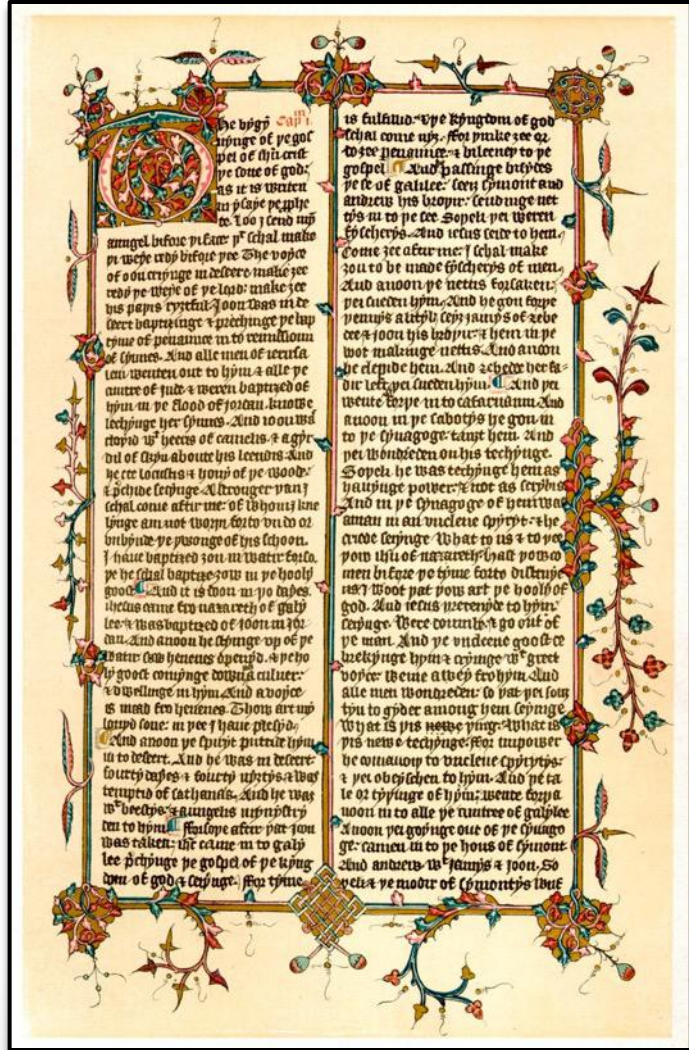 The bygÿ Capm i.
nÿnge of ye gos
pel of ihu crist
ye sone of god:
as it is writen
in ysaye ye pphe
te. Loo I send mÿ
aungel bifore yi face yt schal make
yi weye redy bifore yee The voyce
of oon criynge in desert: make zee
redy ye weye of ye lord: make zee
his papis ryztful Joon was in de
seert baptizinge & prechinge ye bap
tyme of penaunce in to remissioun
of synnes. And alle men of ierusa
lem wenten out to hym & alle ye
cuntre of Jude & weren baptized of
hym in ye flood of Jordan. knowe
lechynge her synnes. And ioon was
cloyid wt heeris of camelis & a gyr
dil of skyn aboute his leendis And
he eet locustis & hony of ye woode:
& pchide seiynge A stronger yan I
schal come aftir me: of whom I kne
lynge am not worpi forto vndo or
vnbynde ye ywonge of his schoon.
I haue baptized zou in watir forso.
ye he schal baptize zow in ye hooly
goost And it is doon in yo dayes.
ihesus came fro nazareth of galy
lee & was baptized of ioon in Jor
dan. And anoon he stiynge vp of ye
watir saw heuenes openyd. & ye ho
ly goost comynge doun as a culuer:
& dwellinge in hym And a voyce
is maad fro heuenes. Thow art my
louyd sone: in yee I haue plesyd.
And anoon ye spiryt puttide hym
in to desert. And he was in desert
fourty dayes & fourty nyztys & was
temptid of sathanas. And he was
wt beestys. & aungelis mynystry
den to hym Forsoye aftir yat Joon
was taken: ihc came in to galy
lee pchynge ye gospel of ye kyng
dom of god & seiynge. For tyme
is fulfillid. & ye kyngdom of god
schal come nyz. For yinke zee or
to zee penaunce. & bileeuey to ye
gospel And passinge bisydes
ye se of galilee: seez symont and
andrew his broyir: sendinge net
tys in to ye see Soyeli yei weren
fyscherys. And iesus seide to hem.
Come zee aftir me: I schal make
zou to be made fyscherys of men.
And anoon ye nettis forsaken:
yei sueden hym. And he gon forye
yennys a lityl: seyz iamys of zebe
dee & ioon his broyir: & hem in ye
boot makinge nettis. And anoon
he clepide hem. And zebede her fa-
dir left: yei sueden hym. And yei
wente forye in to cafarnaum. And
anoon in ye sabotys he gon in
to ye synagoge: tauzt hem. And
yei wondreden on his techynge.
Soyeli he was techynge hem as
hauynge power: & not as scrybis
And in ye synagoge of hem was
a man in an vnclene spyryt: & he
criede seiynge What to us & to yee
yow ihu of nazareth: hast yow co
men bifore ye tyme forto distruye
us? I woot yat yow art ye hooly of
god. And iesus yretenyde to hym:
seiynge. Were coumb: & go out of
ye man And ye vnclene goost de
brekynge hym & criynge wt greet
voyce: wente awey fro hym And
alle men wondreden: so yat yei souz
tyn to gyder among hem seiynge
What is yis newe ying: What is
yis newe techynge: For in power
he comaundiy to vnclene spyrytys:
& yei obeyschen to hym. And ye ta
le or tyyinge of hym: wente forye a
noon in to alle ye cuntree of galylee
Anoon yei goynge oute of ye synago
ge: camen in to ye hous of symont
And andrew: wt Jamys & Joon. So
yeli & ye modir of symontys wyf